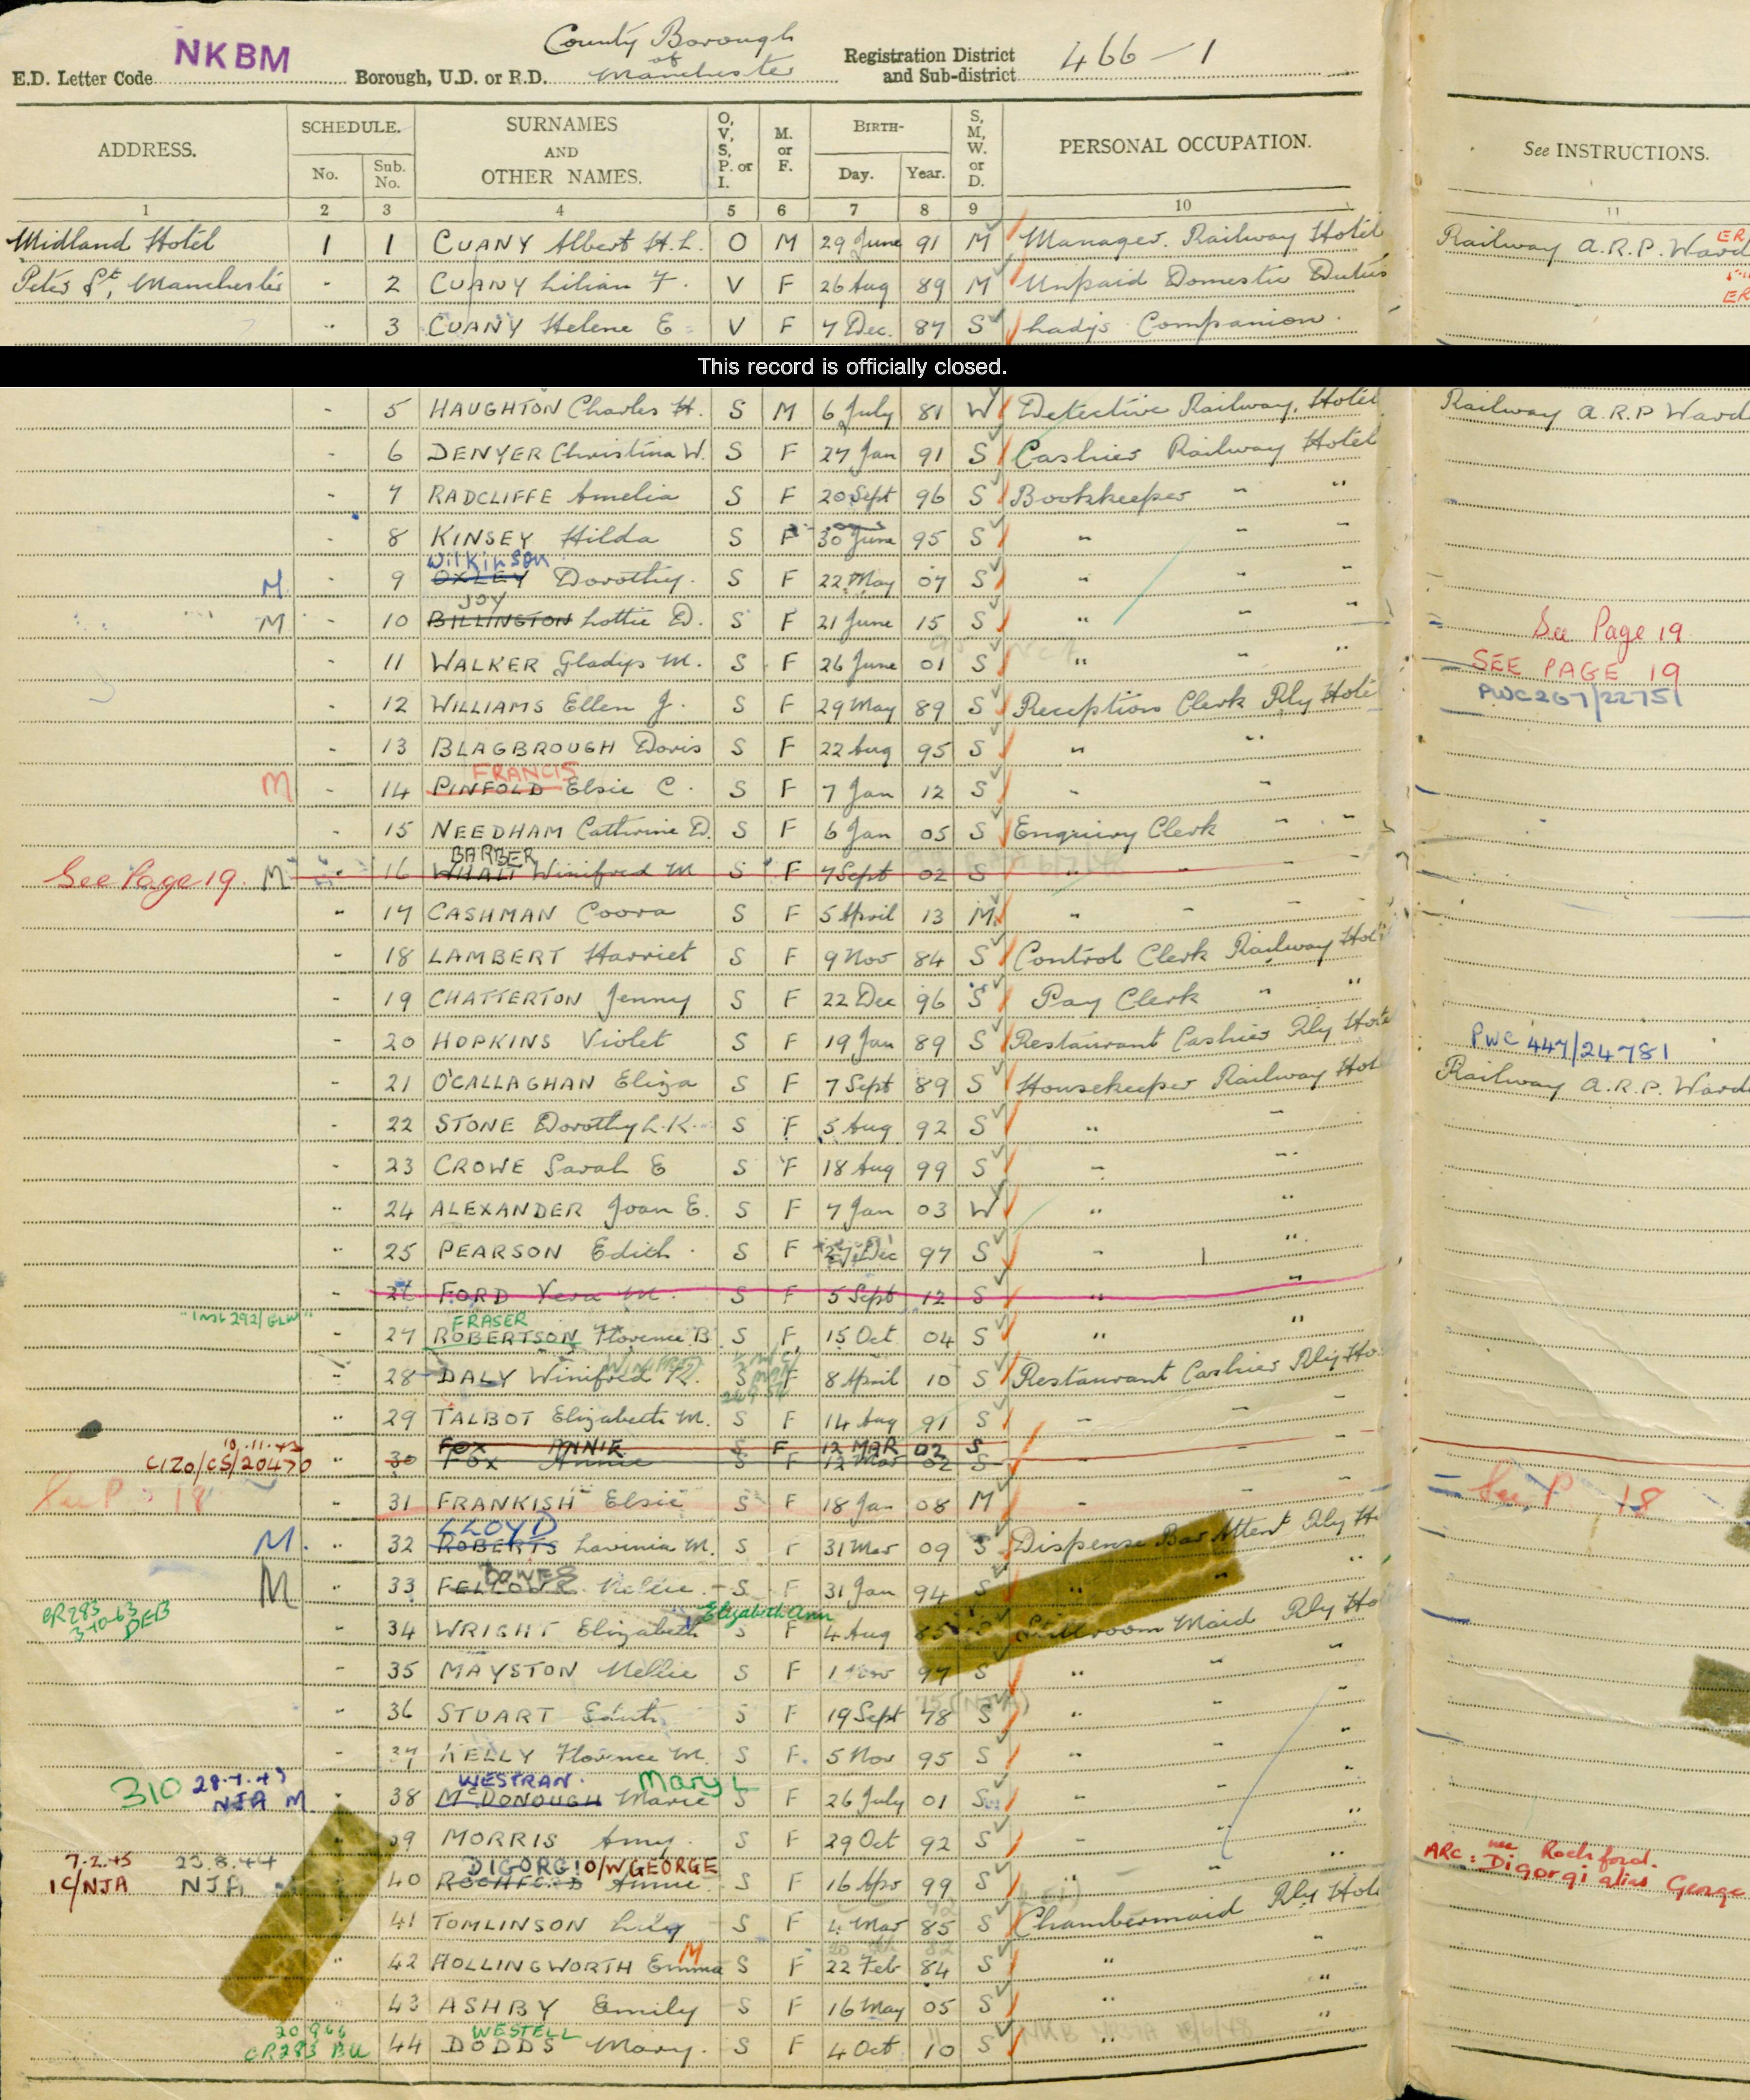 NKBM
County Borough
of
E.D. Letter Code Borough, U.D. or R.D. Manchester Registration District and Sub-district 466-1
ADDRESS. SCHEDULE. No. Sub. No. SURNAMES AND OTHER NAMES. O, V, S, P. or I. M. or F. BIRTH- Day. Year. S, M, W. or D. PERSONAL OCCUPATION. See INSTRUCTIONS.
1 2 3 4 5 6 7 8 9 10 11
Midland Hotel 1 1 CUANY Albert H.L. O M 29 June 91 M Manager. Railway Hotel Railway A.R.P. Ward ER
Peter St, Manchester - 2 CUANY Lilian F. V F 26 Aug 89 M Unpaid Domestic Duties ER
" 3 CUANY Helene E V F 7 Dec. 87 S Lady's Companion.
This record is officially closed.
- 5 HAUGHTON Charles H. S M 6 July 81 W Detective Railway, Hotel Railway A.R.P Ward
- 6 DENYER Christina W. S F 27 Jan 91 S Cashier Railway Hotel
- 7 RADCLIFFE Amelia S F 20 Sept 96 S Bookkeeper " "
- 8 KINSEY Hilda S F 30 June 95 S " " "
Wilkinson
M - 9 OXLEY Dorothy. S F 22 May 07 S " " "
JOY
M - 10 BILLINGTON Lottie D. S F 21 June 15 S " " " See Page 19
- 11 WALKER Gladys M. S F 26 June 01 S " " " SEE PAGE 19
- 12 WILLIAMS Ellen J. S F 29 May 89 S Reception Clerk Rly Hotel PWC267/22751
- 13 BLAGBROUGH Doris S F 22 Aug 95 S " "
FRANCIS
M - 14 PINFOLD Elsie C. S F 7 Jan 12 S " "
- 15 NEEDHAM Catherine D. S F 6 Jan 05 S Enquiry Clerk " "
BARBER
See Page 19. M - 16 Winifred M S F 7 Sept 02 S " "
" 17 CASHMAN Coora S F 5 April 13 M " " "
- 18 LAMBERT Harriet S F 9 Nov 84 S Control Clerk Railway Hot
- 19 CHATTERTON Jenny S F 22 Dec 96 S Pay Clerk " "
- 20 HOPKINS Violet S F 19 Jan 89 S Restaurant Cashier Rly Hotel PWC 447/24781
- 21 O'CALLAGHAN Eliza S F 7 Sept 89 S Housekeeper Railway Hot Railway A.R.P. Ward
- 22 STONE Dorothy L.K. S F 5 Aug 92 S " "
- 23 CROWE Sarah E S F 18 Aug 99 S " "
" 24 ALEXANDER Joan E. S F 7 Jan 03 W " "
" 25 PEARSON Edith S F 27 Dec 97 S " "
- 26 FORD Vera M. S F 5 Sept 12 S " "
FRASER
- 27 ROBERTSON Florence B S F 15 Oct 04 S " "
- 28 DALY Winifred R. S F 8 April 10 S Restaurant Cashier Rly Ho
" 29 TALBOT Elizabeth M. S F 14 Aug 91 S " "
10.11.43 FOX ANNIE S F 12 MAR 02 S
" 30 Fox Annie S F 12 Mar 02 S
See P 18 - 31 FRANKISH Elsie S F 18 Jan 08 M " " = See P 18
LLOYD
M. " 32 ROBERTS Lavinia M. S F 31 Mar 09 S Dispense Bar Attent Rly Ho
M " 33 Nellie S F 31 Jan 94 S " "
CR283 3-10-63 DEB Elizabeth Ann
- 34 WRIGHT Elizabeth S F 4 Aug 85 S Stillroom Maid Rly Ho
- 35 MAYSTON Nellie S F 1 Nov 97 S " "
- 36 STUART Edith S F 19 Sept 78 S " "
- 37 KELLY Florence M. S F 5 Nov 95 S " "
WESTRAN. Mary L
310 NJA M. 38 McDONOUGH Marie S F 26 July 01 S " "
39 MORRIS Amy. S F 29 Oct 92 S " "
7.2.45 23.8.44 DIGORGIO/W GEORGE ARC: see Rochford.
1C/NJA NJA 40 ROCHFORD Annie. S F 16 Apr 99 S " " Digorgi alias George
41 TOMLINSON Lily S F 4 Mar 85 S Chambermaid Rly Hot
M
" 42 HOLLINGWORTH Emma S F 22 Feb 84 S " "
43 ASHBY Emily S F 16 May 05 S " "
WESTELL
CR283 44 DODDS Mary. S F 4 Oct 10 S " "